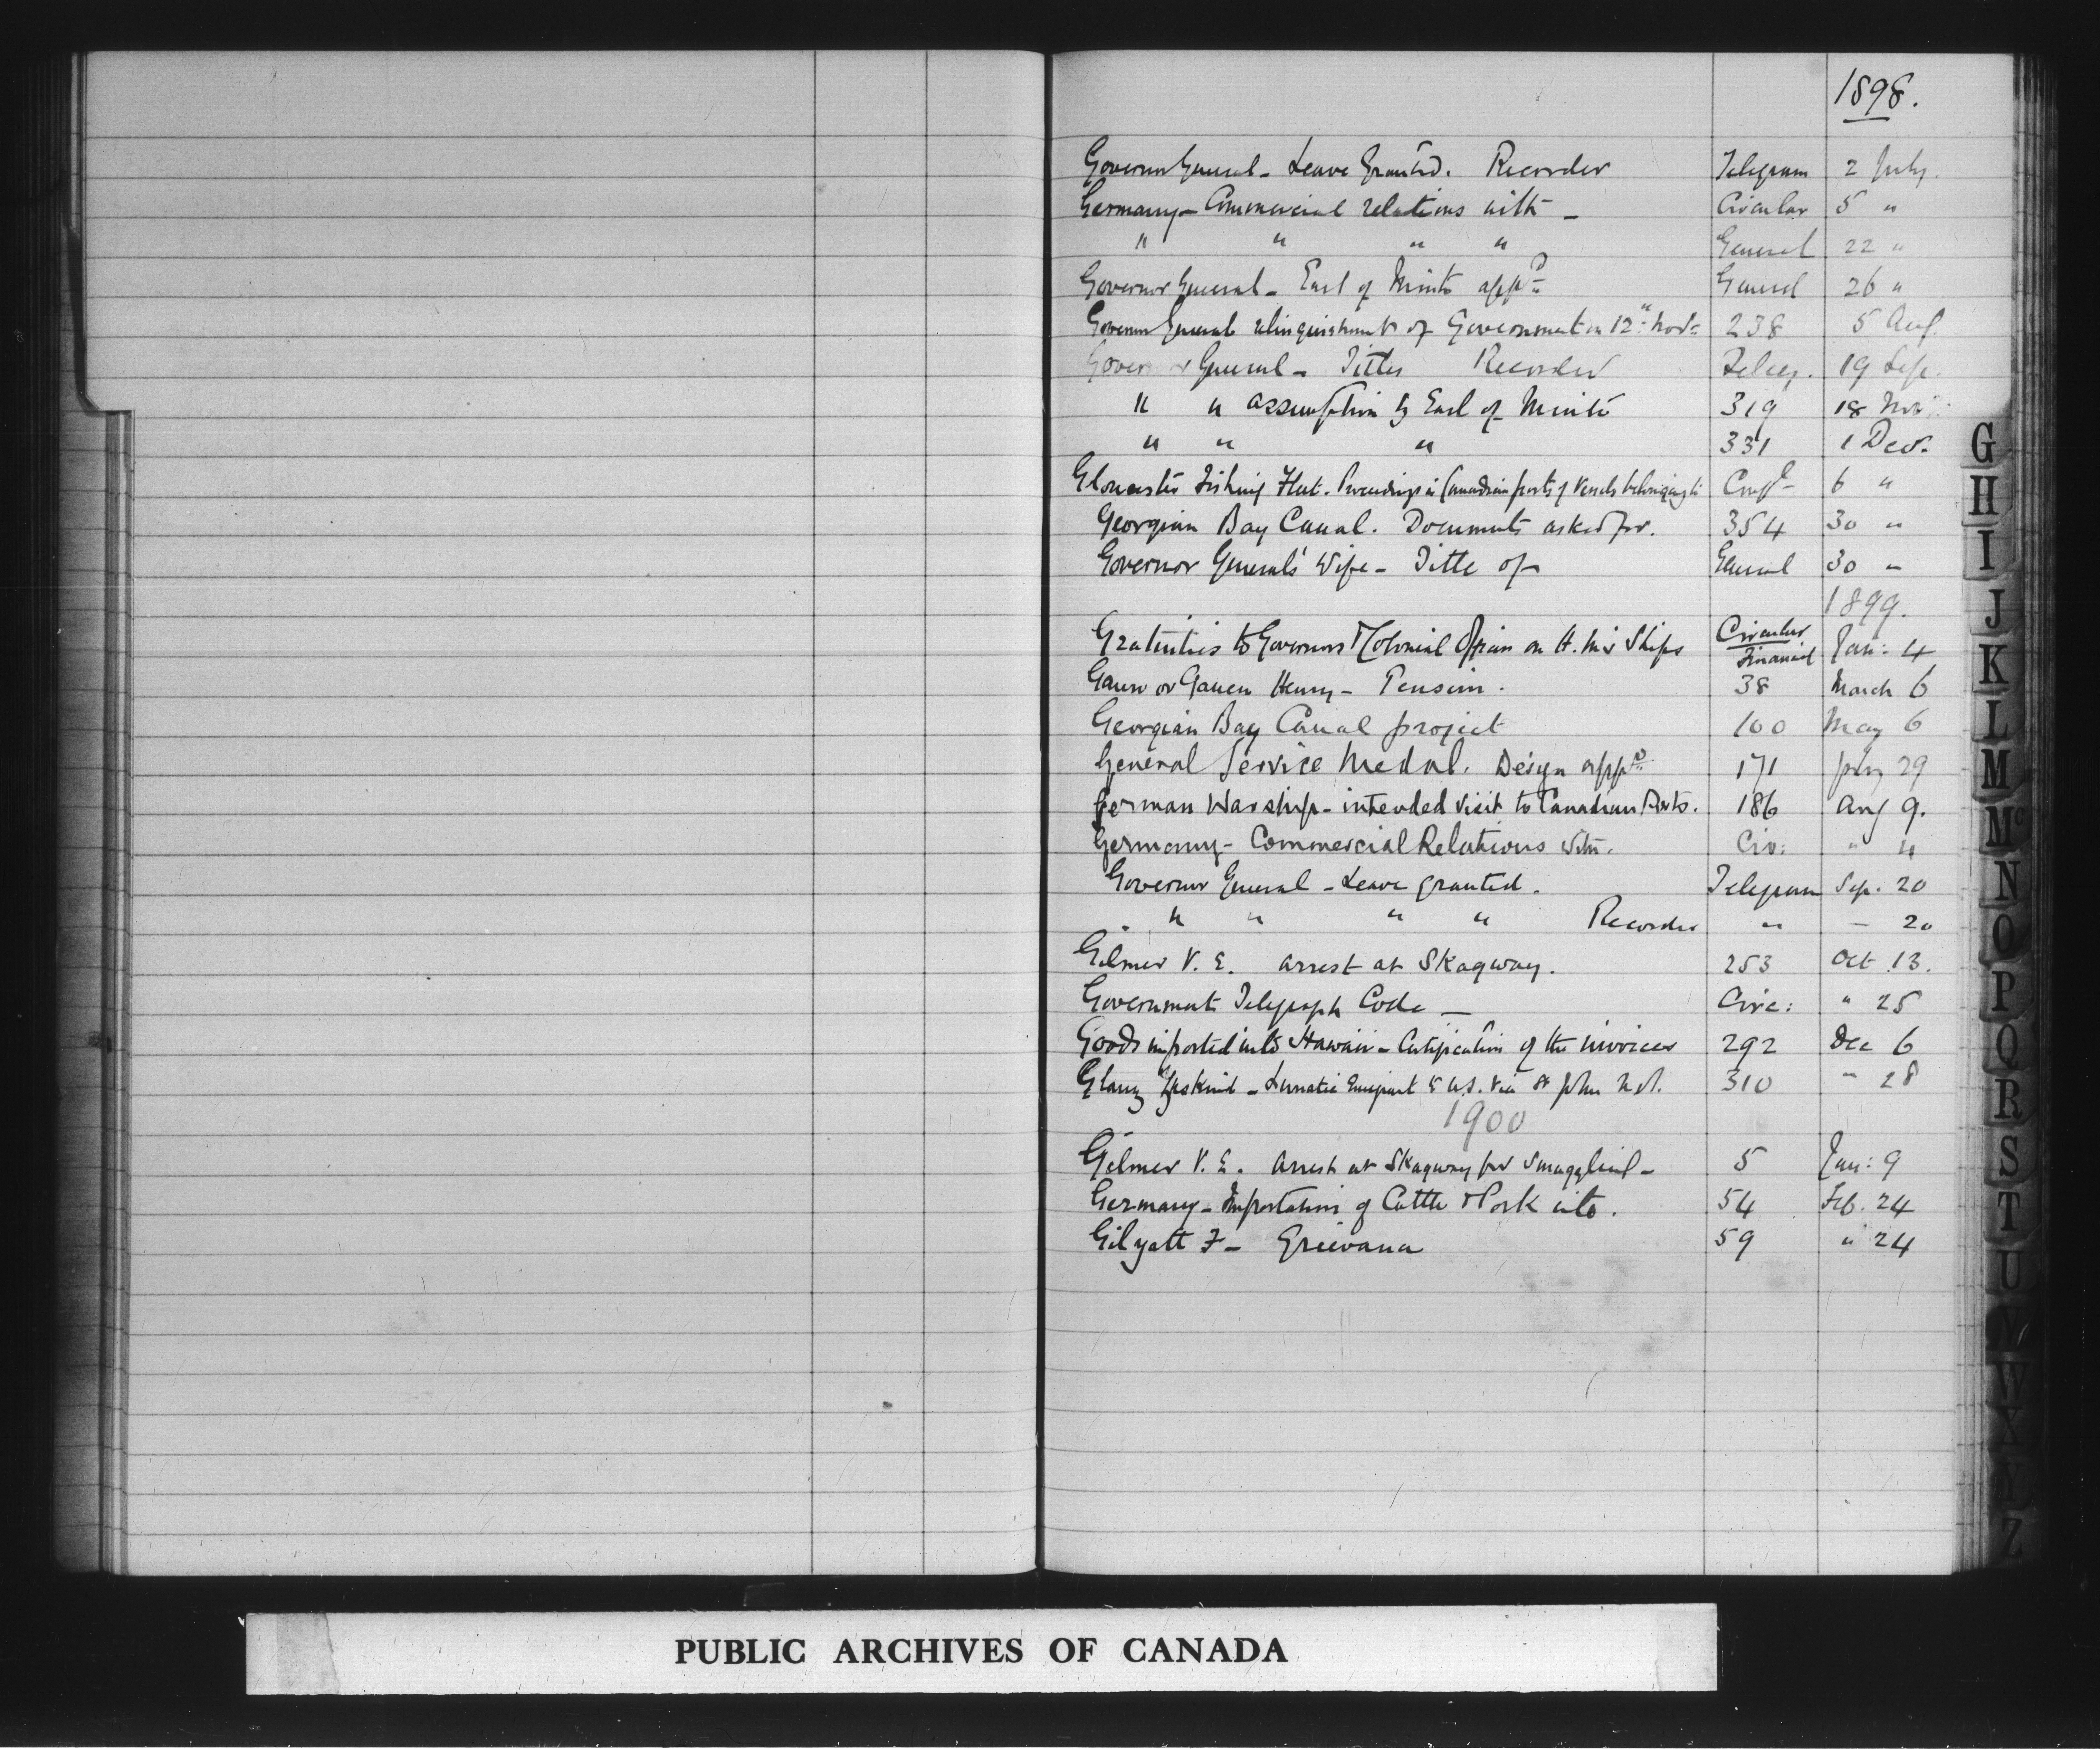 1898.
Governor General - Leave Granted. Recorder Telegram 2 July.
Germany - Commercial relations with - Circular 5 "
" " " " General 22 "
Governor General - Earl of Minto appd General 26 "
Governor General relinquishment of Government on 12th Novr 238 5 Aug.
Governor General - Titles Recorder Teleg. 19 Sep.
" " assumption by Earl of Minto 319 18 Nov
" " " 331 1 Decr.
Gloucester Fishing Fleet. Proceedings in Canadian ports of Vessels belonging to Confl 6 "
Georgian Bay Canal. Documents asked for. 354 30 "
Governor Generals' Wife - Title of General 30 "
1899.
Gratuities to Governors & Colonial Officers on H.M's Ships Circular Financial Jan: 4
Gaun or Gauen Henry - Pension. 38 March 6
Georgian Bay Canal project 100 May 6
General Service Medal. Design appd. 171 July 29
German Warship - intended visit to Canadian Ports. 186 Aug 9.
Germany - Commercial Relations with. Cir: " 11
Governor General - Leave granted. Telegram Sep. 20
" " " " Recorder " - 20
Gilmer V. E. arrest at Skagway. 253 Oct 13.
Government Telegraph Code - Circ: " 25
Goods imported into Hawaii - Certification of the invoices 292 Dec 6
Glanz - Lunatic Emigrant to U.S. via St John N.B. 310 " 28
1900
Gilmer V. E. Arrest at Skagway for Smuggling - 5 Jan: 9
Germany - Importation of Cattle & Pork into. 54 Feb. 24
Gilyatt F - Grievance 59 " 24
G
H
I
J
K
L
M
Mc
N
O
P
Q
R
S
T
U
V
W
X
Y
Z
PUBLIC ARCHIVES OF CANADA